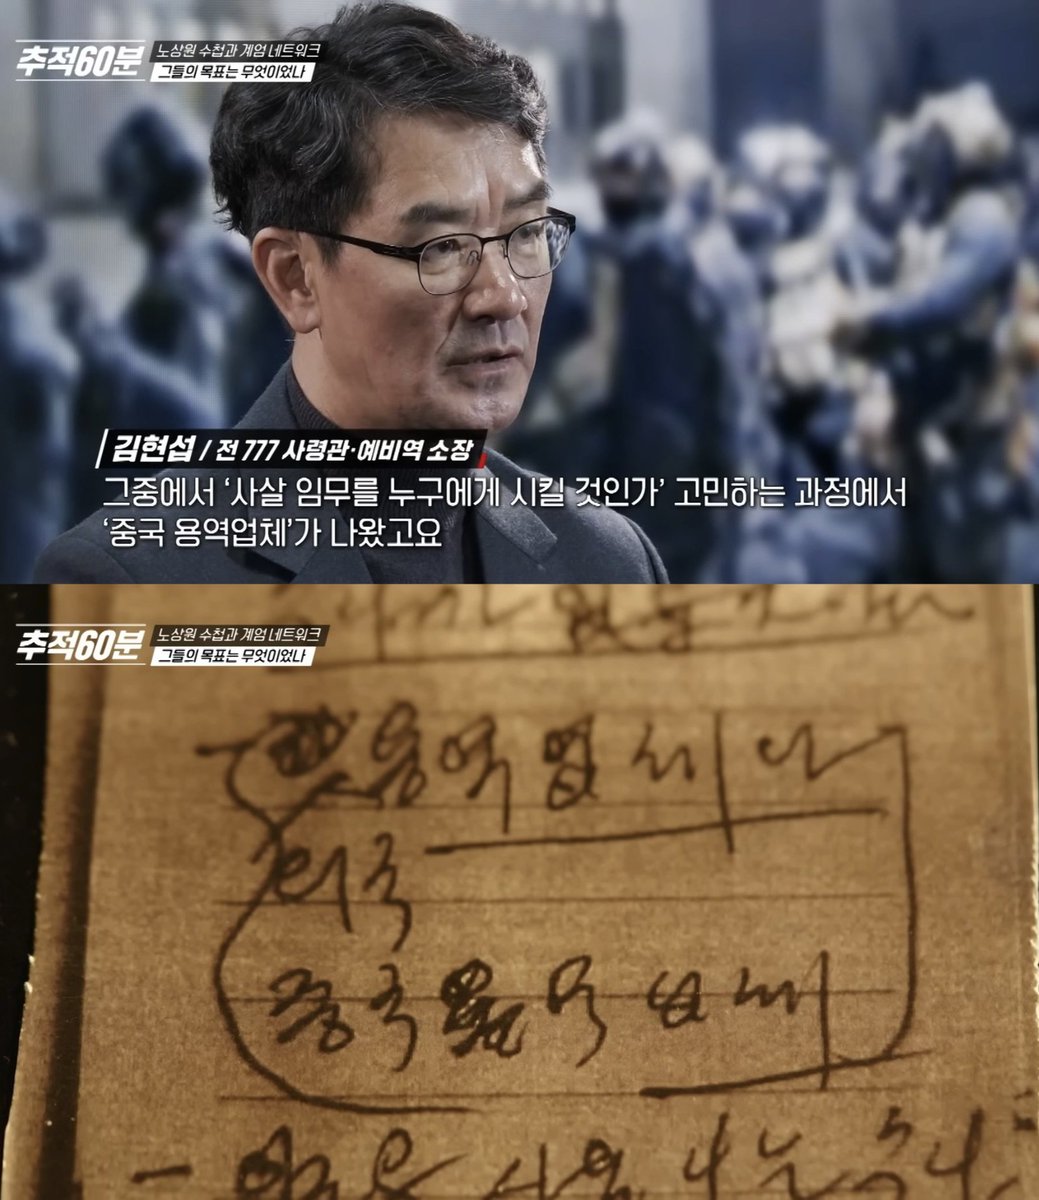 추적60분
노상원 수첩과 계엄 네트워크
그들의 목표는 무엇이었나
김현섭 / 전 777 사령관·예비역 소장
그중에서 ‘사살 임무를 누구에게 시킬 것인가’ 고민하는 과정에서
‘중국 용역업체’가 나왔고요
추적60분
노상원 수첩과 계엄 네트워크
그들의 목표는 무엇이었나
용역업체나
외국
중국 용역업체